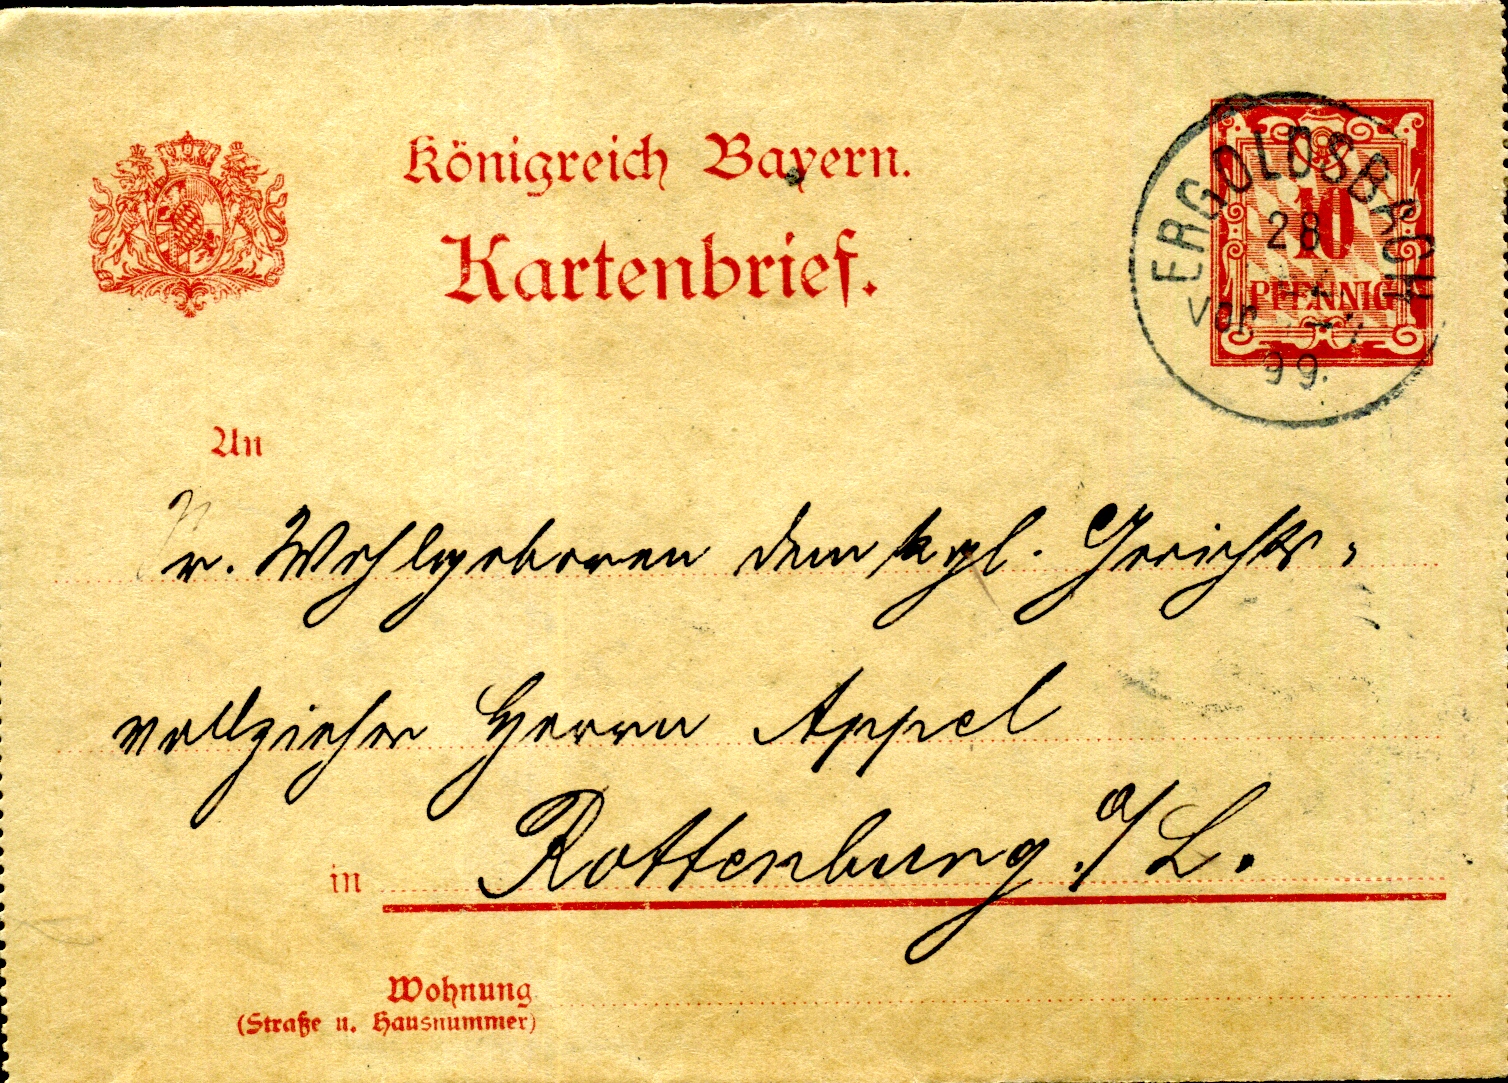 Königreich Bayern.
Kartenbrief.
10
PFENNIG
ERGOLDSBACH
28
Vor
99.
An
Sr. Wohlgeboren dem kgl. Gerichts-
vollzieher Herrn Appel
in Rottenburg a/L.
Wohnung
(Straße u. Hausnummer)